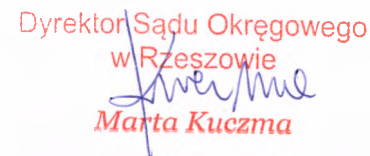 Dyrektor Sądu Okręgowego
w Rzeszowie
Marta Kuczma